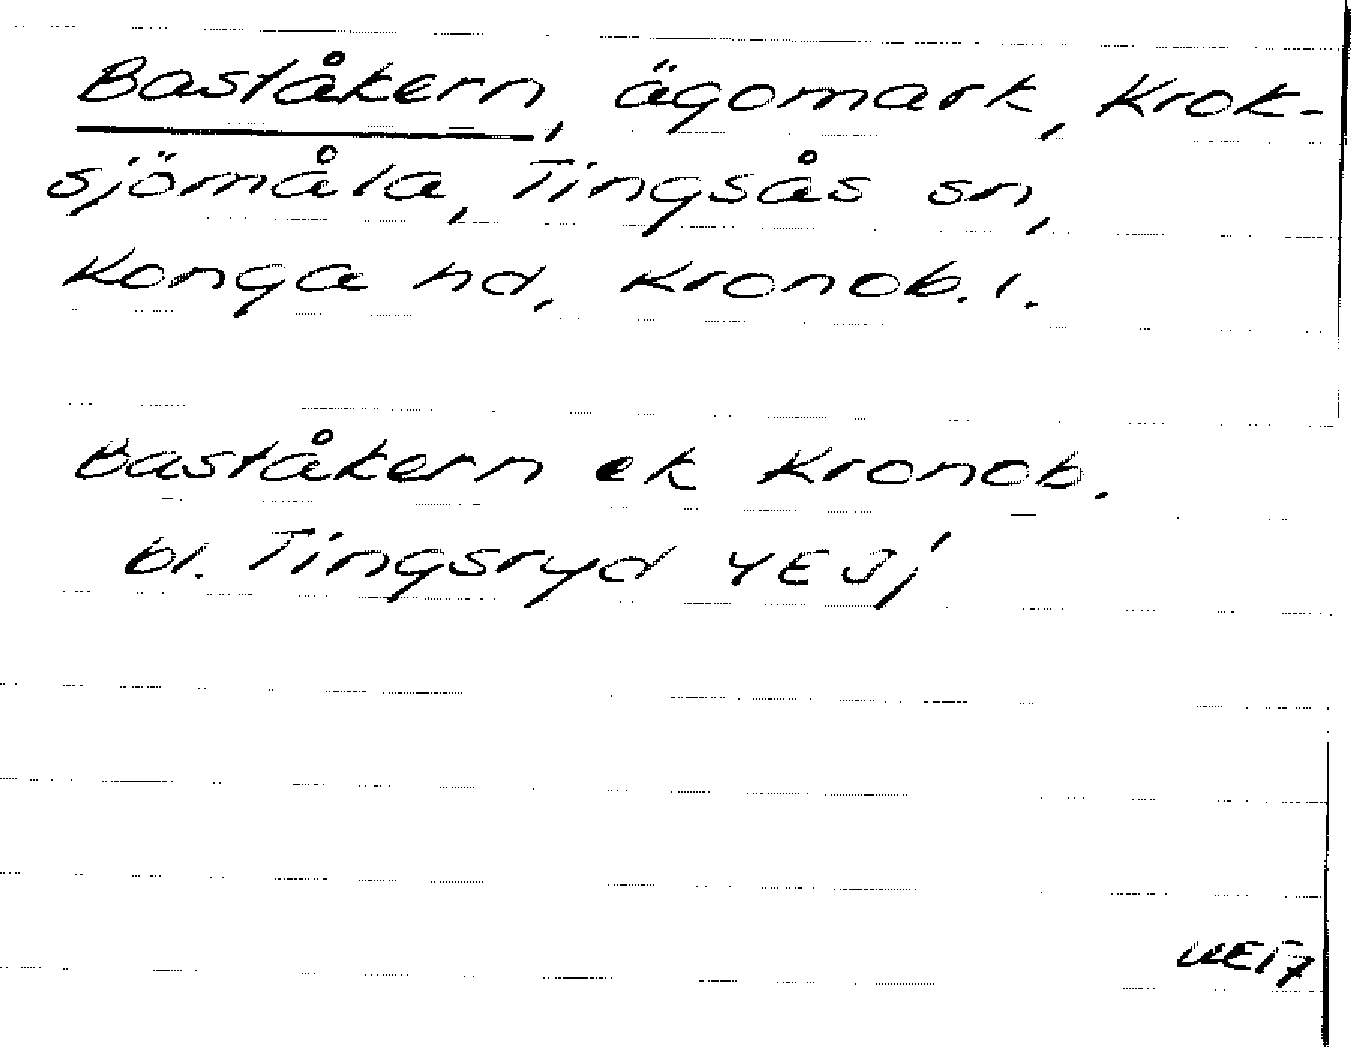 Baståkern, ägomark, Krok-
sjömåla, Tingsås sn,
Konga hd, Kronob. l.
Baståkern ek Kronob.
bl. Tingsryd 4E Sj